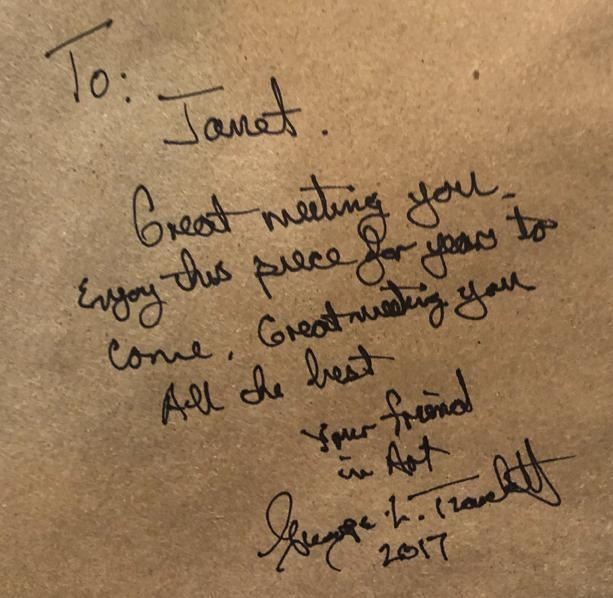 To:
Janet.
Great meeting you.
Enjoy this piece for years to
come. Great meeting you
All the best
Your friend
in Art
George L.
2017